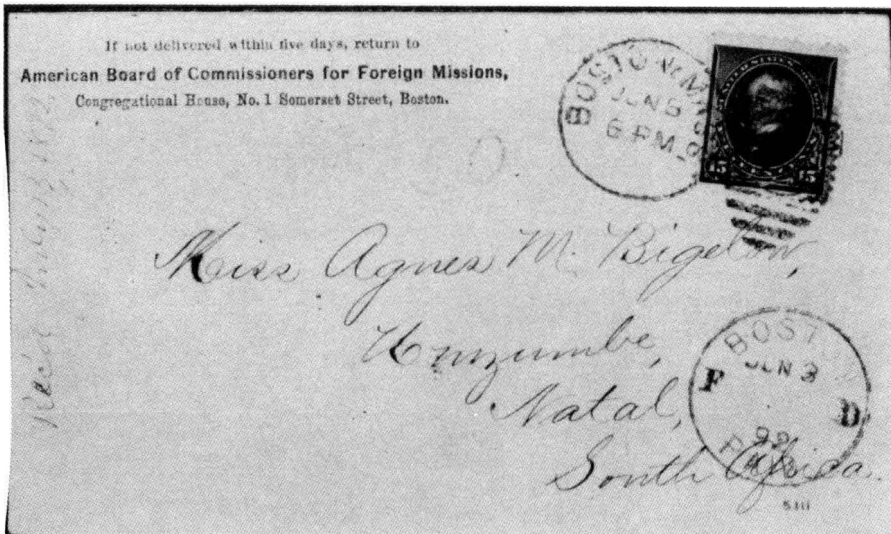 If not delivered within five days, return to
American Board of Commissioners for Foreign Missions,
Congregational House, No. 1 Somerset Street, Boston.
BOSTON. MASS.
JUN 3
6 PM
15 15
Miss Agnes M. Bigelow,
Umzumbe,
Natal,
South Africa.
BOST
JUN 3
F D
99
PAID
Rec'd